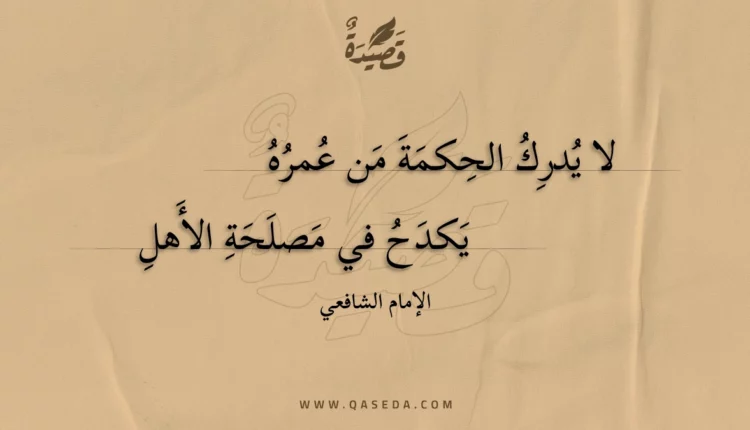 قَصِيدَةٌ
لا يُدرِكُ الحِكمَةَ مَن عُمرُهُ
يَكدَحُ في مَصلَحَةِ الأَهلِ
الإمام الشافعي
WWW.QASEDA.COM